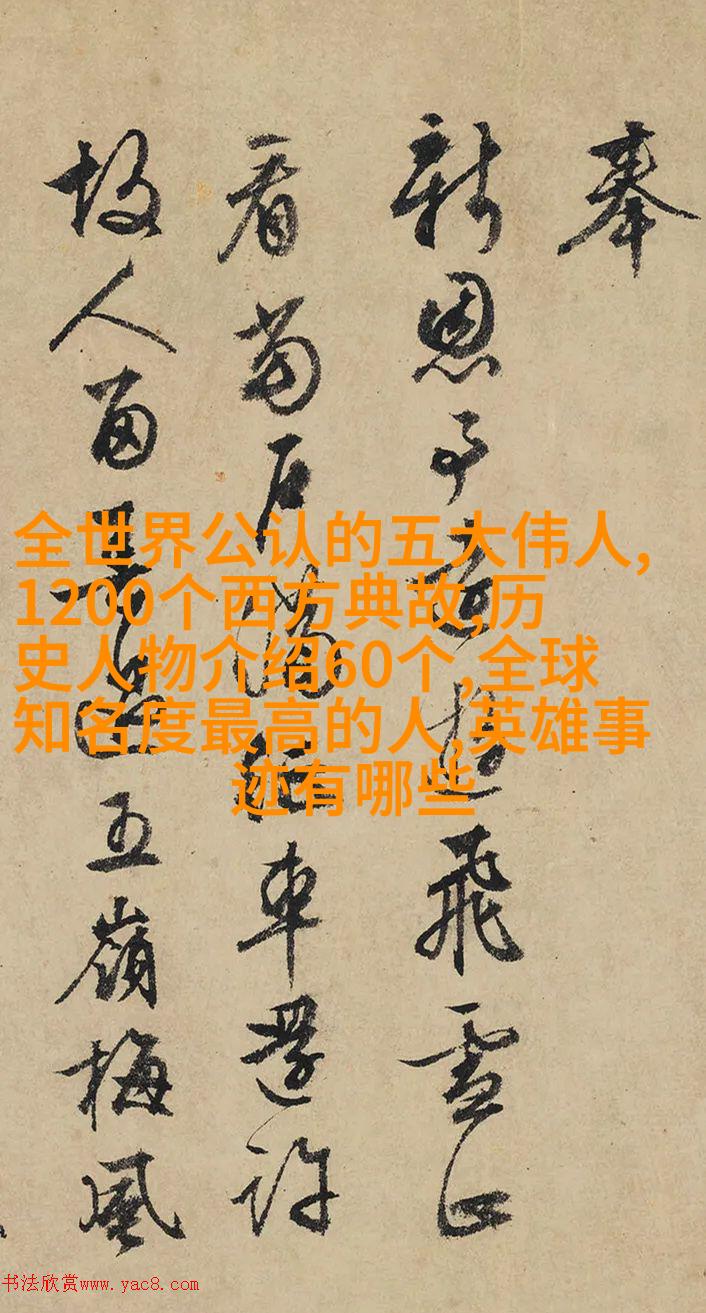 奉
新恩予 飛雪正
看 后 車還許
故人 五嶺梅風
全世界公认的五大伟人,
1200个西方典故,历
史人物介绍60个,全球
知名度最高的人,英雄事
迹有哪些
书法欣赏www.yac8.com